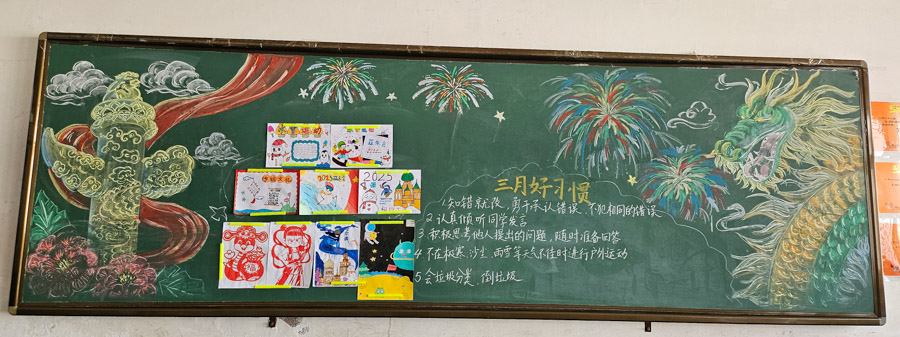 2025
2025
三月好习惯
1.知错就改，勇于承认错误，不犯相同的错误
2.认真倾听同学发言
3.积极思考他人提出的问题，随时准备回答
4.不在极寒、沙尘、雨雪等天气不佳时进行户外运动
5.会垃圾分类、倒垃圾